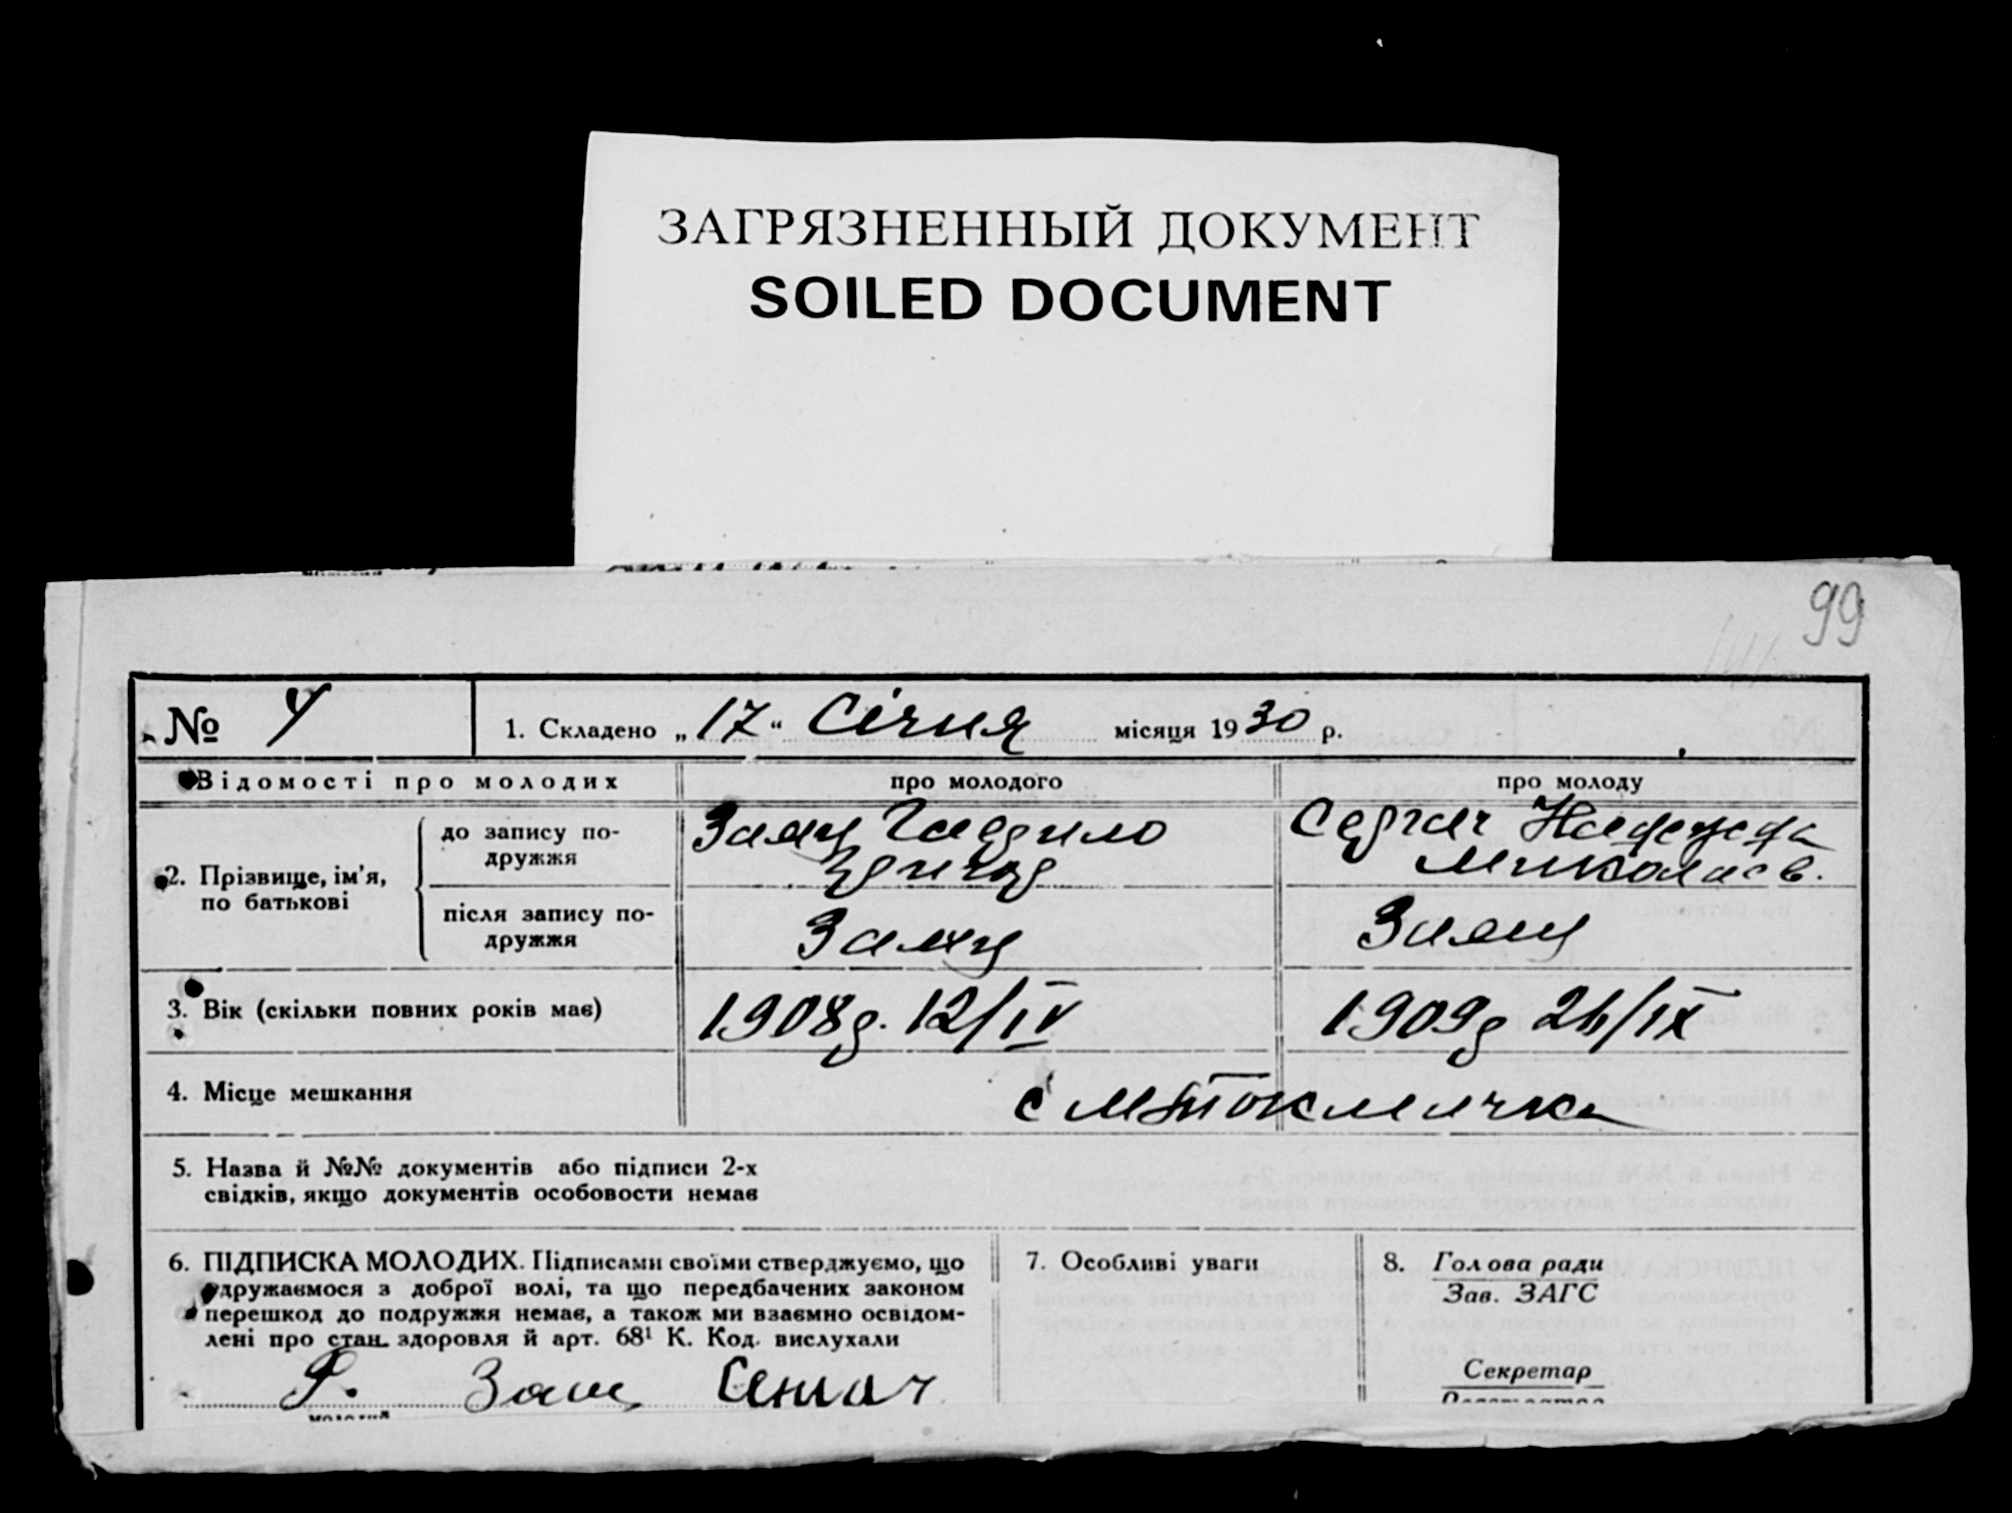 ЗАГРЯЗНЕННЫЙ ДОКУМЕНТ
SOILED DOCUMENT
99
№ 4
1. Складено „17“ Січня місяця 1930 р.
Відомості про молодих
про молодого
про молоду
2. Прізвище, ім’я, по батькові
до запису по-
дружжя
Заяц
Сергач Надежда
Николаев.
після запису по-
дружжя
Заяц
Заяц
3. Вік (скільки повних років має)
1908г. 12/IV
1909г 26/IX
4. Місце мешкання
с МТокмачка
5. Назва й №№ документів або підписи 2-х
свідків, якщо документів особовости немає
6. ПІДПИСКА МОЛОДИХ. Підписами своїми стверджуємо, що
одружаємося з доброї волі, та що передбачених законом
перешкод до подружжя немає, а також ми взаємно освідом-
лені про стан здоровля й арт. 68¹ К. Код. вислухали
Заяц
молодий
7. Особливі уваги
8. Голова ради
Зав. ЗАГС
Секретар